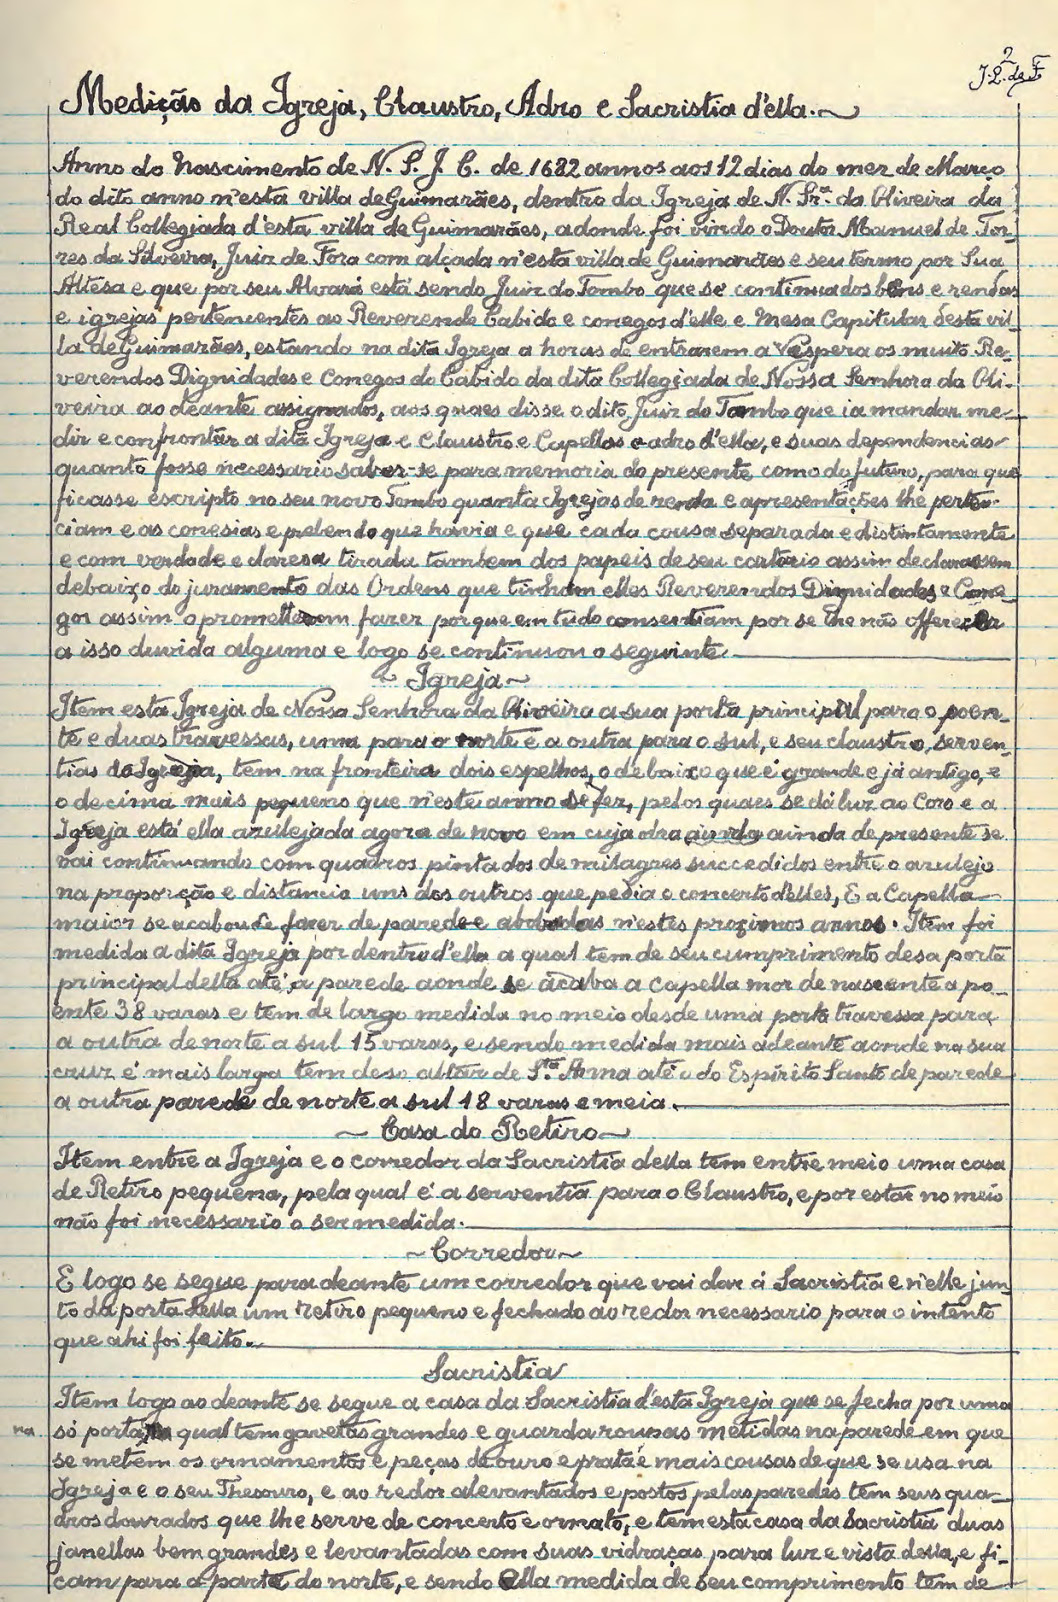 2
J. L. de F
Medição da Igreja, Claustro, Adro e Sacristia d'ella.~
Anno do Nascimento de N. S. J. C. de 1682 annos aos 12 dias do mez de Março
do dito anno n'esta villa de Guimarães, dentro da Igreja de N. Sr.ª da Oliveira da
Real Collegiada d'esta villa de Guimarães, adonde foi vindo o Doutor Manuel de Tor-
res da Silveira, Juiz de Fora com alçada n'esta villa de Guimarães e seu termo por Sua
Altesa e que por seu Alvará está sendo Juiz do Tombo que se continua dos bens e rendas
e igrejas pertencentes ao Reverendo Cabido e conegos d'elle e Mesa Capitular desta vil-
la de Guimarães, estando na dita Igreja a horas de entrarem a Vespera os muito Re-
verendos Dignidades e Conegos do Cabido da dita Collegiada de Nossa Senhora da Oli-
veira ao deante assignados, aos quaes disse o dito Juiz do Tombo que ia mandar me-
dir e confrontar a dita Igreja e Claustro e Capellas e adro d'ella, e suas dependencias
quanto fosse necessario saber-se para memoria do presente como do futuro, para que
ficasse escripto no seu novo Tombo quanta Igrejas de renda e apresentações lhe perten-
ciam e as conesias e prebendo que havia e que cada cousa separada e distintamente
e com verdade e claresa tirada tambem dos papeis de seu cartorio assim declarassem
debaixo do juramento das Ordens que tinham elles Reverendos Dignidades e Cone-
gos assim o prometterom fazer porque em tudo consentiam por se lhe não offerecer
a isso duvida alguma e logo se continuou o seguinte
~ Igreja ~
Item esta Igreja de Nossa Senhora da Oliveira a sua porta principal para o poen-
te e duas travessas, uma para o norte e a outra para o sul, e seu claustro, serven-
tias da Igreja, tem na fronteira dois espelhos, o debaixo que é grande e já antigo, e
o decima mais pequeno que n'este anno se fez, pelos quaes se dá luz ao Coro e a
Igreja está ella azulejada agora de novo em cuja obra ainda de presente se
vai continuando com quadros pintados de milagres succedidos entre o azulejo
na proporção e distancia uns dos outros que pedia o concerto d'elles, E a Capella
maior se acabou de fazer de parede e abobadas n'estes proximos annos. Item foi
medida a dita Igreja por dentro d'ella a qual tem de seu cumprimento desa porta
principal della até a parede aonde se acaba a capella mor de nascente a po-
ente 38 varas e tem de largo medida no meio desde uma porta travessa para
a outra de norte a sul 15 varas, e sendo medida mais adeante aonde na sua
cruz é mais larga tem deso altar de S.ta Anna até o do Espírito Santo de parede
a outra parede de norte a sul 18 varas e meia.
~ Casa do Retiro ~
Item entre a Igreja e o corredor da Sacristia della tem entre meio uma casa
de Retiro pequena, pela qual é a serventia para o Claustro, e por estar no meio
não foi necessario o ser medida.
~ Corredor ~
E logo se segue para deante um corredor que vai dar á Sacristia e n'elle jun-
to da porta della um retiro pequeno e fechado ao redor necessario para o intento
que ahi foi feito.
Sacristia
Item logo ao deante se segue a casa da Sacristia d'esta Igreja que se fecha por uma
na
só porta qual tem gavetas grandes e guarda roupas metidas na parede em que
se metem os ornamentos e peças de ouro e prata e mais cousas de que se usa na
Igreja e o seu Thesouro, e ao redor alevantados e postos pelas paredes tem seus qua-
dros dourados que lhe serve de concerto e ornato, e tem esta casa da Sacristia duas
janellas bem grandes e levantadas com suas vidraças para luz e vista della, e fi-
cam para a parte do norte, e sendo ella medida de seu comprimento tem de